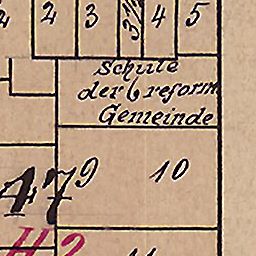 2 3 3/4 4 5
Schule
der reform
Gemeinde
9 10
47
H 2
11